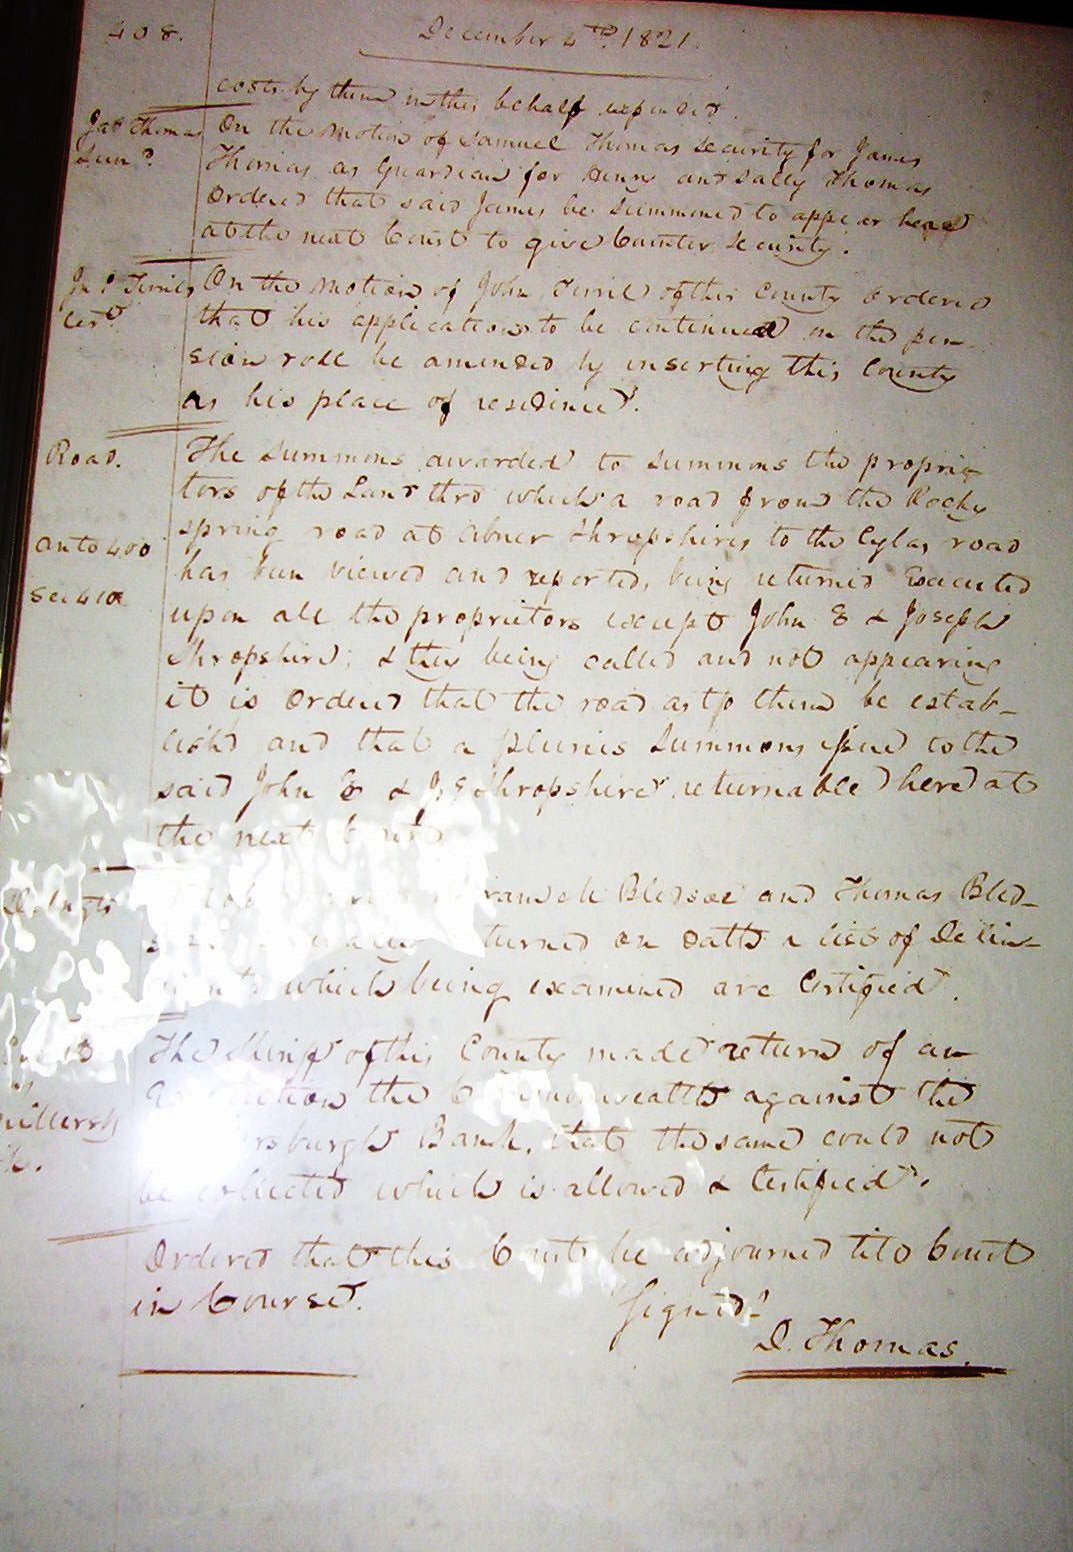 408.
December 4th 1821.
costs by them in this behalf expended.
Jas Thomas
Sum?
On the motion of Samuel Thomas security for James
Thomas as Guardian for Henry and Sally Thomas
Ordered that said James be Summoned to appear here
at the next Court to give Counter Security.
Jno Terrils
Cert
On the Motion of John Terril of this County Ordered
that his application to be continued on the pen-
sion roll be amended by inserting this County
as his place of residence.
Road.
The Summons awarded to summons the proprie
tors of the Land thro which a road from the Rocky
ante 400
spring road at Abner Shropshires to the Cylas road
has been viewed and reported, being returned Executed
See 410
upon all the proprietors except John E & Joseph
Shropshire; & they being called and not appearing
it is Ordered that the road as to them be estab-
lishd and that a pluries Summons issue to the
said John E & J. E Shropshire returnable here at
the next Court
Bledsoe and Thomas Bled-
turned on oath a list of Delin-
which being examined are Certified.
The Sheriff of this County made return of an
Execution the Commonwealth against the
millersb
rsburgh Bank, that the same could not
be collected which is allowed & Certified.
Ordered that this Court be adjourned till Court
in Course.
Signed
D. Thomas.